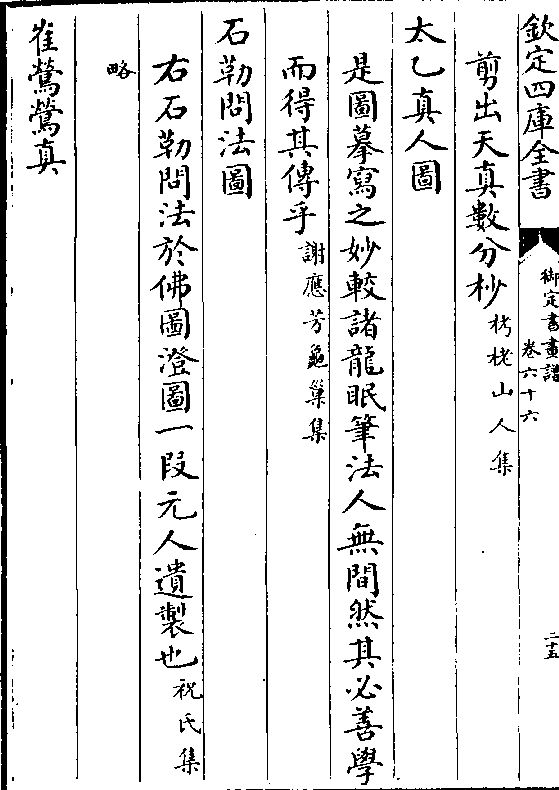 欽定四庫全書
御定書畫譜
卷六十六
二十五
剪出天真數分杪栲栳山人集
太乙真人圖
是圖摹寫之妙較諸龍眠筆法人無間然其必善學
而得其傳乎謝應芳龜巢集
石勒問法圖
右石勒問法於佛圖澄圖一段元人遺製也祝氏集
略
崔鶯鶯真